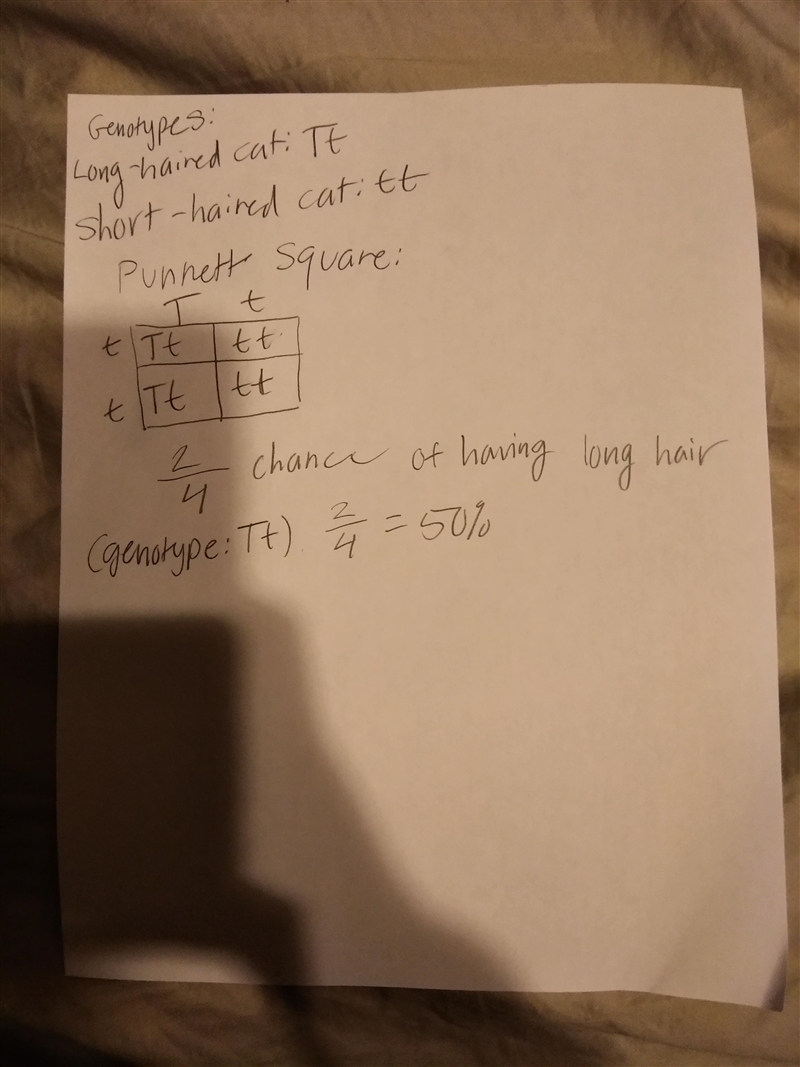 Genotypes:
Long-haired cat: Tt
Short-haired cat: tt
Punnett Square:
T t
t Tt tt
t Tt tt
2/4 chance of having long hair
(genotype: Tt). 2/4 = 50%